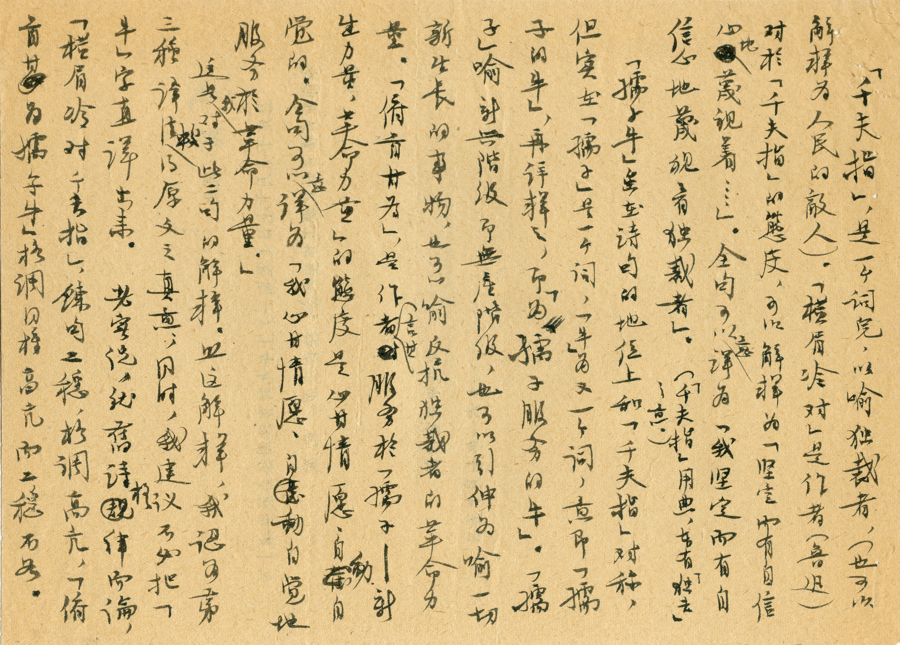 「千夫指」，是一个词儿，以喻独裁者，（也可以
解释为人民的敌人）。「横眉冷对」是作者（鲁迅）
对於「千夫指」的态度，可以解释为「坚定而有自信
心地蔑视着……」。全句可以意译为「我坚定而有自
信心地蔑视着独裁者」。（「千夫指」用典，古有「独夫」之意）
「孺子牛」在诗句的地位上和「千夫指」对称，
但实在「孺子」是一个词，「牛」为又一个词，意即「孺
子的牛」，再详释之，即为「孺子服务的牛」。「孺
子」喻新兴阶级即无产阶级，也可以引伸为喻一切
新生长的事物，也可喻反抗独裁者的革命力
量。「俯首甘为」，是作者（言其）服务於「孺子—新
生力量，革命力量」的态度是心甘情愿、自动自
觉的。全句可以意译为「我心甘情愿、自动自觉地
服务於革命力量。」
这是我对于此二句的解释。照这解释，我认为第
三种译法较得原文之真意，同时，我建议不如把「
牛」字直译出来。老实说，就旧诗格律而论，
「横眉冷对千夫指」，鍊句工稳，格调高亢，「俯
首甘为孺子牛」格调同样高亢而工稳不如。